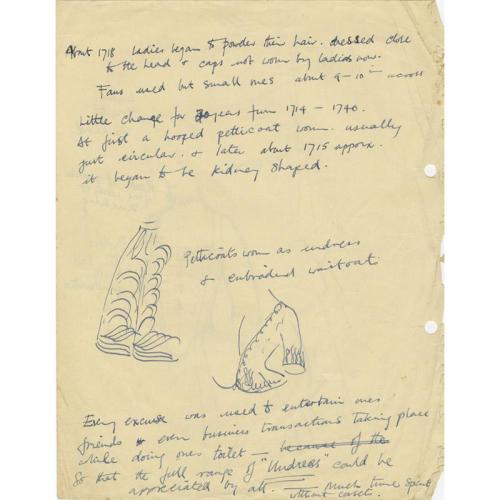 About 1718 ladies began to powder their hair. dressed close
to the head & caps not worn by ladies now.
Fans used but small ones about 9-10in across
Little change for years from 1714 - 1740.
At first a hooped petticoat worn. usually
just circular. & later about 1715 approx.
it began to be kidney shaped.
Petticoats worn as undress
& embroidered waistcoats.
Every excuse was used to entertain ones
friends & even business transactions taking place
while doing ones toilet because of the
So that the full range of "Undress" could be
appreciated by all. Much time spent
without corsets.